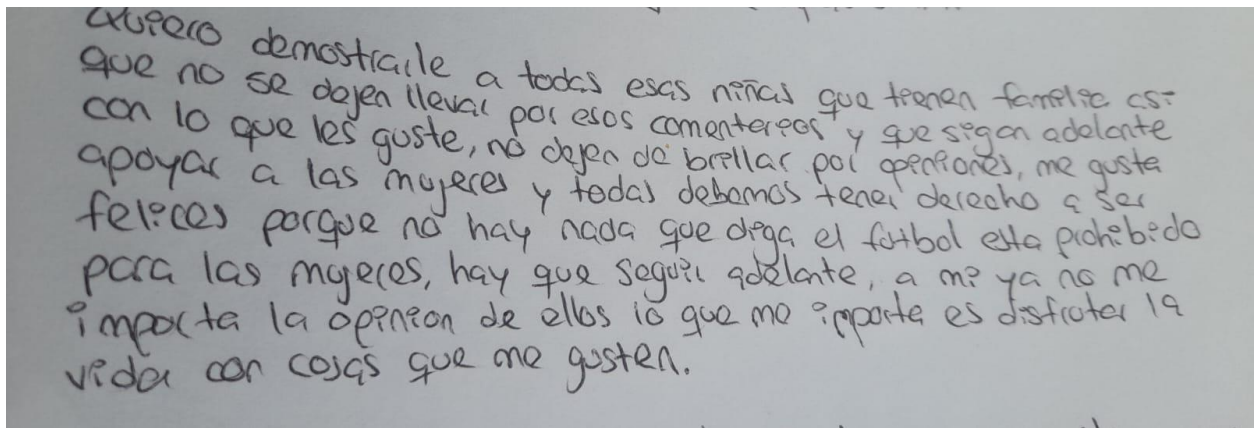 Quiero demostrarle a todas esas niñas que tienen familia asi
que no se dejen llevar por esos comentereos y que sigan adelante
con lo que les guste, no dejen de brillar por opiniones, me gusta
apoyar a las mujeres y todas debemos tener derecho a ser
felices porque no hay nada que diga el futbol esta prohibido
para las mujeres, hay que seguir adelante, a mi ya no me
importa la opinion de ellos lo que me importe es disfruter la
vida con cosas que me gusten.